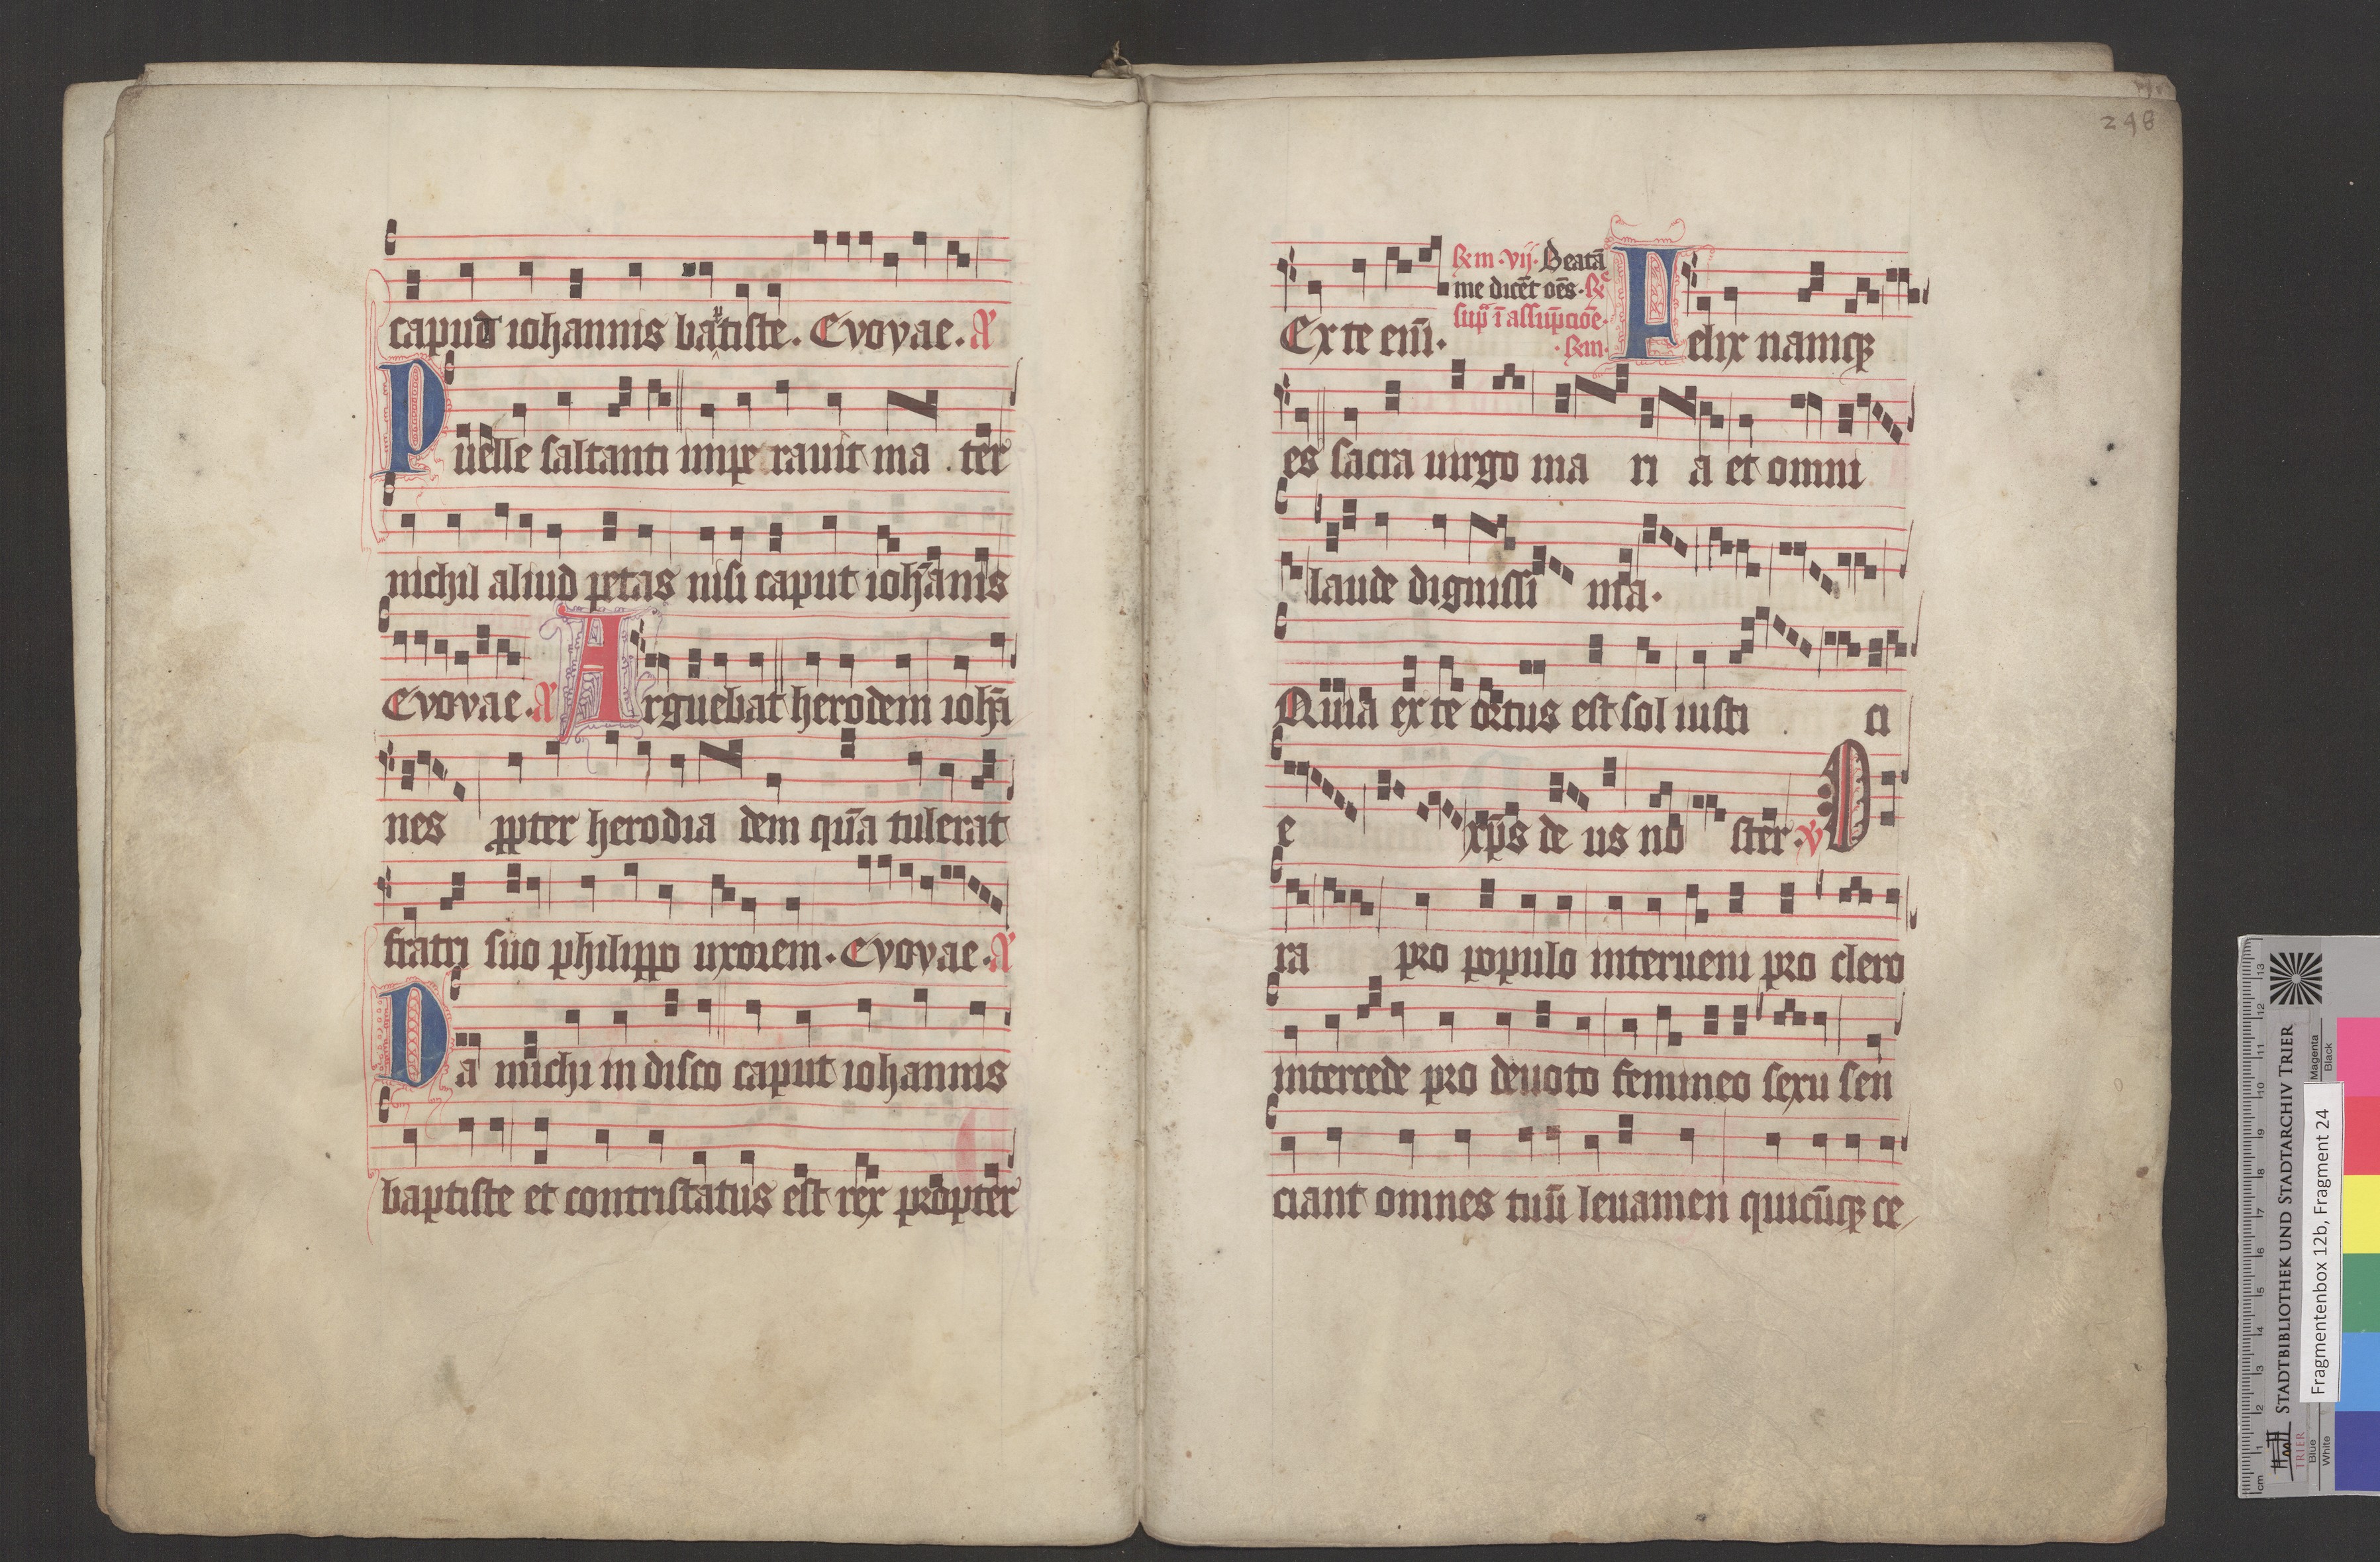 caput iohannis baptiste. Evovae. A
Puelle saltanti impe rauit ma ter
nichil aliud petas nisi caput ioh̄anis
Evovae. A Arguebat herodem ioh̄a
nes ꝓpter herodia dem quā tulerat
fratri suo philippo uxorem. Evovae. A
Da michi in disco caput iohannis
baptiste et contristatus est rex propter
248
Ex te eni̅.
Rm̄ vij. Beatā
me dicēt oēs. R
sup̄ ī assūpcōe.
Rm̄. Felix namqꝫ
es sacra uirgo ma ri a et omni
laude dignissi ma.
Quia ex te ortus est sol iusti ci
e xp̄s de us no ster. V O
ra pro populo interueni pro clero
intercede pro deuoto femineo sexu sen
ciant omnes tuū leuamen quicūqꝫ ce
STADTBIBLIOTHEK UND STADTARCHIV TRIER
TRIER
Fragmentenbox 12b, Fragment 24
Magenta
Black
Blue
White
cm 1 2 3 4 5 6 7 8 9 10 11 12 13